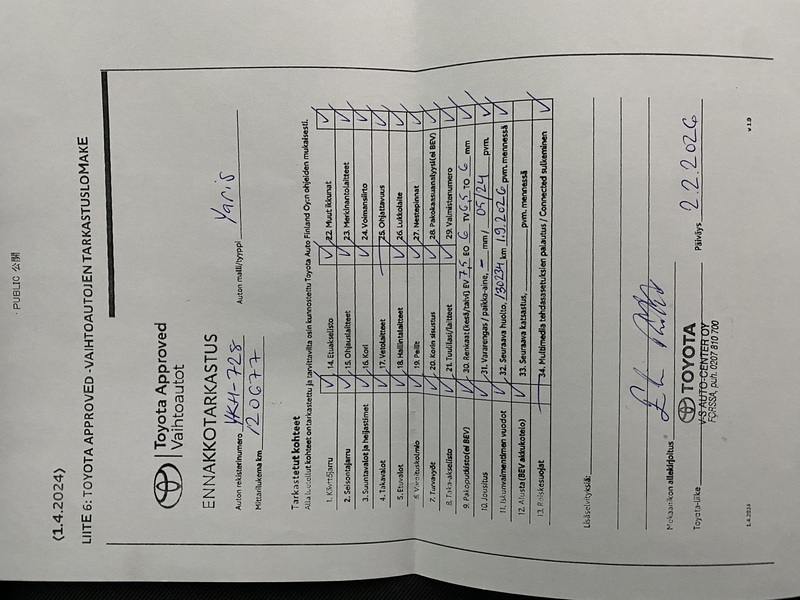 PUBLIC 公開
(1.4.2024)
LIITE 6: TOYOTA APPROVED -VAIHTOAUTOJEN TARKASTUSLOMAKE
Toyota Approved
Vaihtoautot
ENNAKKOTARKASTUS
Auton rekisterinumero YKH-728 Auton malli/tyyppi Yaris
Mittarilukema km 120677
Tarkastetut kohteet
Alla luetellut kohteet on tarkastettu ja tarvittavilta osin kunnostettu Toyota Auto Finland Oy:n ohjeiden mukaisesti.
1. Käyttöjarru ✓ 14. Etuakselisto ✓ 22. Muut ikkunat ✓
2. Seisontajarru ✓ 15. Ohjauslaitteet ✓ 23. Merkinantolaitteet ✓
3. Suuntavalot ja heijastimet ✓ 16. Kori ✓ 24. Voimansiirto ✓
4. Takavalot ✓ 17. Vetolaitteet 25. Ohjattavuus ✓
5. Etuvalot ✓ 18. Hallintalaitteet ✓ 26. Lukkolaite ✓
6. Varoituskolmio ✓ 19. Peilit ✓ 27. Nestepinnat ✓
7. Turvavyöt ✓ 20. Korin sisustus ✓ 28. Pakokaasuanalyysi(ei BEV) ✓
8. Taka-akselisto ✓ 21. Tuulilasi/laitteet ✓ 29. Valmistenumero ✓
9. Pakoputkisto(ei BEV) ✓ 30. Renkaat (kesä/talvi) EV 7,5 EO 6 TV 6,5 TO 6 mm ✓
10. Jousitus ✓ 31. Vararengas / paikka-aine, – mm / 05/24 pvm. ✓
11. Iskunvaimennimen vuodot ✓ 32. Seuraava huolto, 130234 km 1.9.2026 pvm. mennessä ✓
12. Alusta (BEV akkukotelo) ✓ 33. Seuraava katsastus, pvm. mennessä
13. Roiskesuojat 34. Multimedia tehdasasetuksien palautus / Connected sulkeminen ✓
Lisäselvityksiä:
Mekaanikon allekirjoitus
Toyota-liike TOYOTA Päiväys 2.2.2026
V-S AUTO-CENTER OY
FORSSA, puh. 0207 810 700
1.4.2024 v 1.0